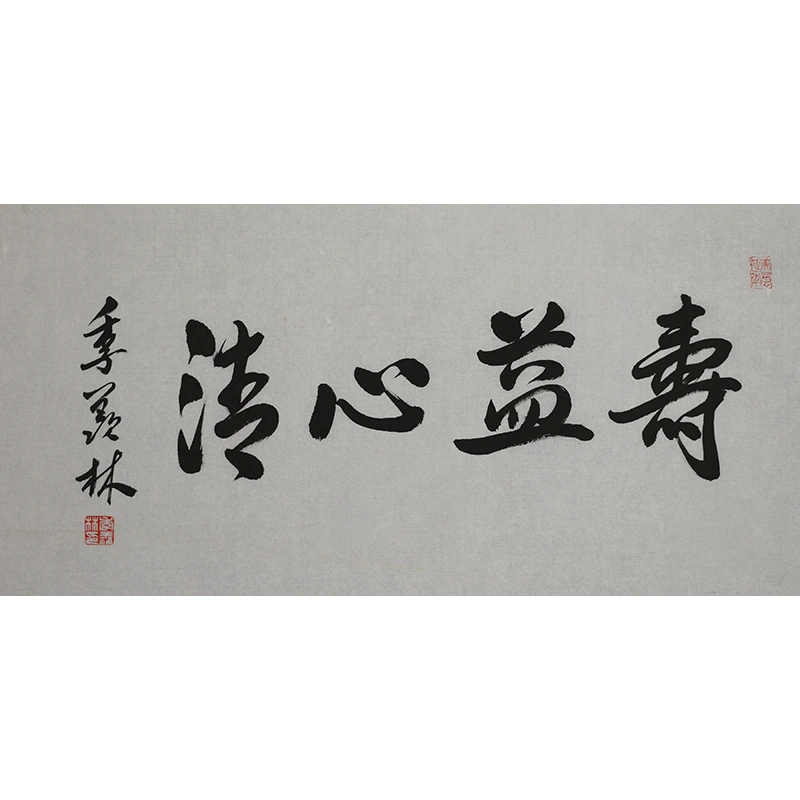 壽益心清
季羨林